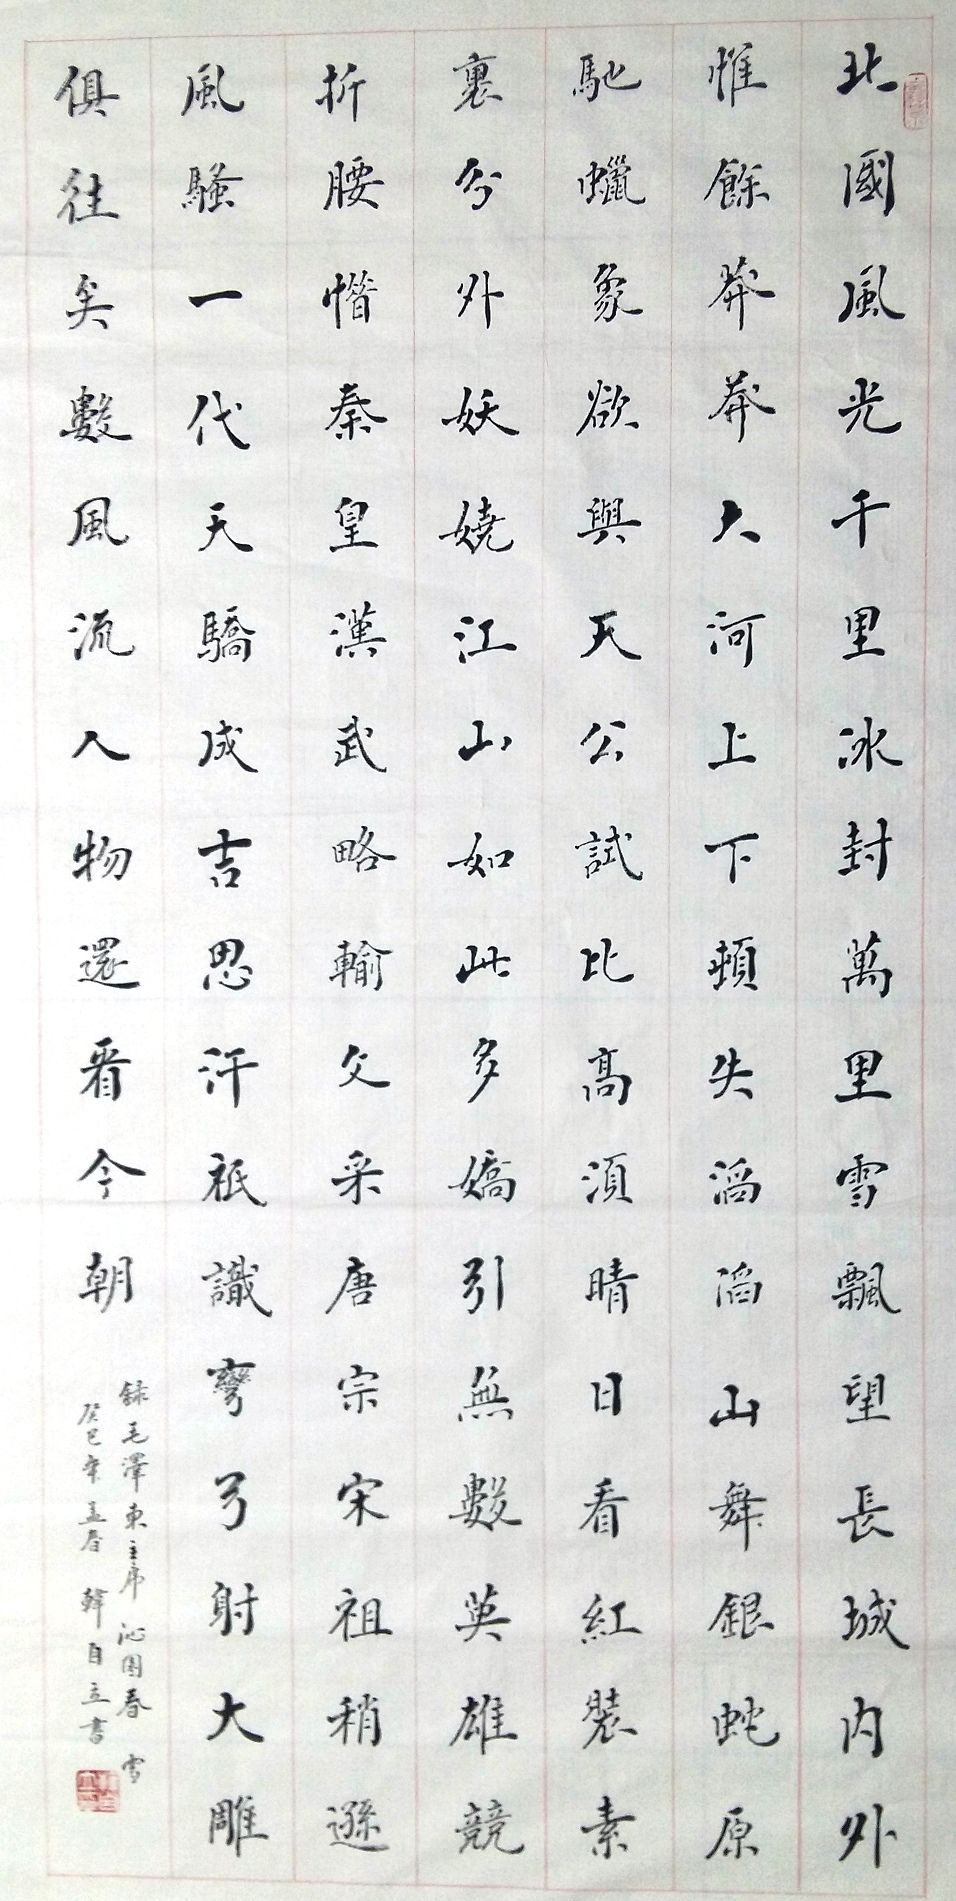 北國風光千里冰封萬里雪飄望長城内外
惟餘莽莽大河上下頓失滔滔山舞銀蛇原
馳蠟象欲與天公試比高須晴日看紅裝素
裹分外妖嬈江山如此多嬌引無數英雄競
折腰惜秦皇漢武略輸文采唐宗宋祖稍遜
風騷一代天驕成吉思汗祇識彎弓射大雕
俱往矣數風流人物還看今朝
録毛澤東主席沁園春雪
癸巳年孟春韓自立書